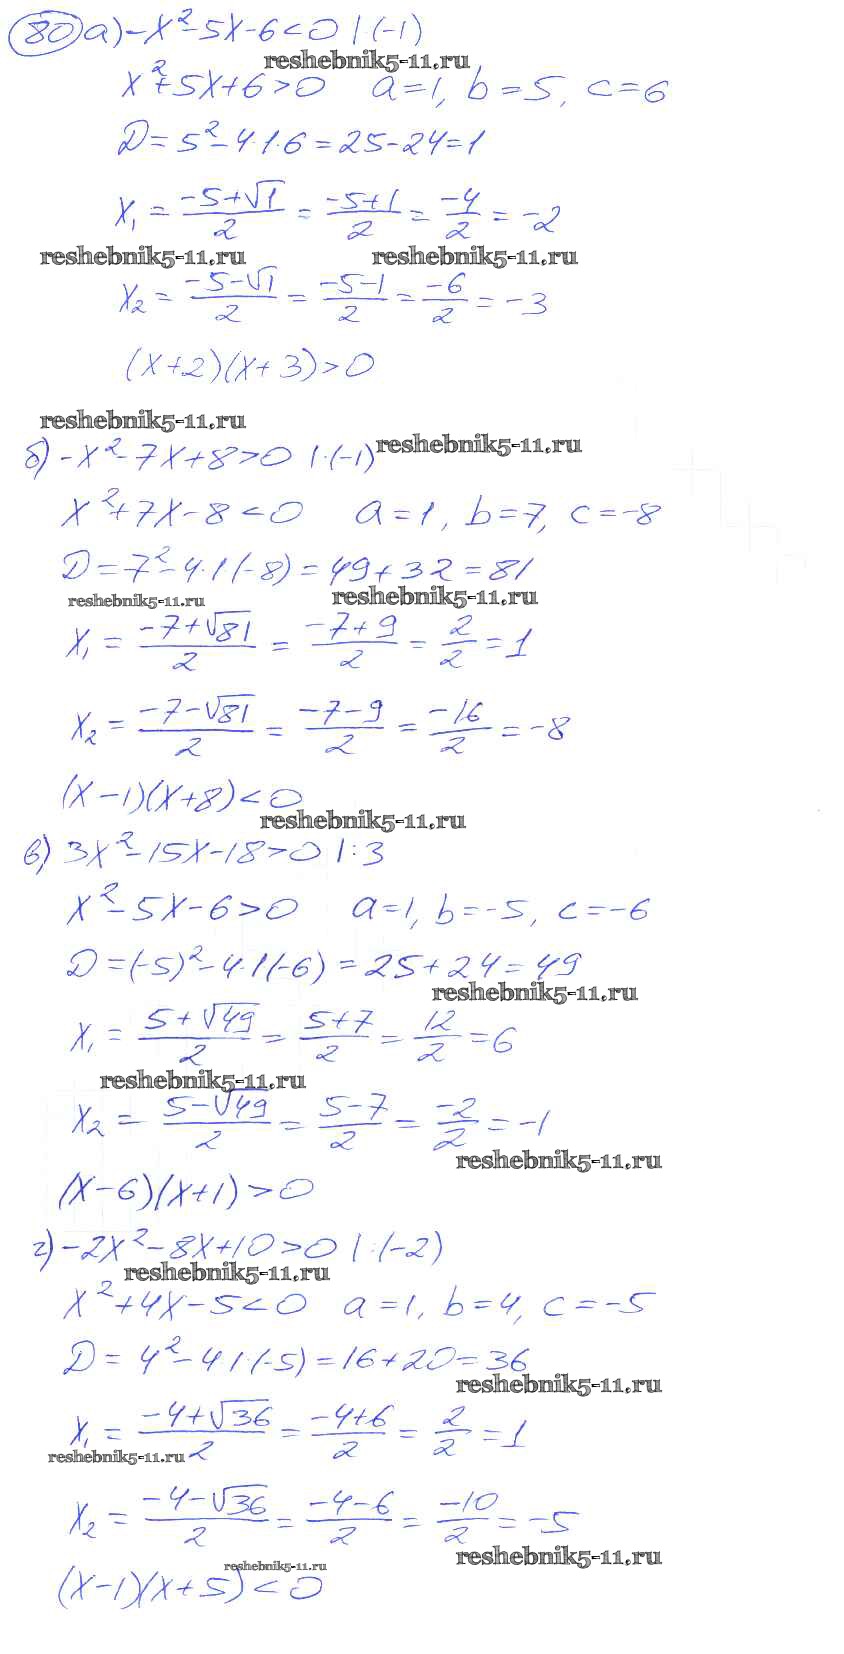 80 а) -x²-5x-6<0 | (-1)
reshebnik5-11.ru
x²+5x+6>0 a=1, b=5, c=6
D=5²-4·1·6=25-24=1
x₁ = (-5+√1)/2 = (-5+1)/2 = -4/2 = -2
reshebnik5-11.ru reshebnik5-11.ru
x₂ = (-5-√1)/2 = (-5-1)/2 = -6/2 = -3
(x+2)(x+3)>0
reshebnik5-11.ru
reshebnik5-11.ru
б) -x²-7x+8>0 |·(-1)
x²+7x-8<0 a=1, b=7, c=-8
D=7²-4·1(-8)=49+32=81
reshebnik5-11.ru reshebnik5-11.ru
x₁ = (-7+√81)/2 = (-7+9)/2 = 2/2 = 1
x₂ = (-7-√81)/2 = (-7-9)/2 = -16/2 = -8
(x-1)(x+8)<0
reshebnik5-11.ru
в) 3x²-15x-18>0 |:3
x²-5x-6>0 a=1, b=-5, c=-6
D=(-5)²-4·1(-6)=25+24=49
reshebnik5-11.ru
x₁ = (5+√49)/2 = (5+7)/2 = 12/2 = 6
reshebnik5-11.ru
x₂ = (5-√49)/2 = (5-7)/2 = -2/2 = -1
reshebnik5-11.ru
(x-6)(x+1)>0
г) -2x²-8x+10>0 |:(-2)
reshebnik5-11.ru
x²+4x-5<0 a=1, b=4, c=-5
D=4²-4·1·(-5)=16+20=36
reshebnik5-11.ru
x₁ = (-4+√36)/2 = (-4+6)/2 = 2/2 = 1
reshebnik5-11.ru
x₂ = (-4-√36)/2 = (-4-6)/2 = -10/2 = -5
reshebnik5-11.ru
reshebnik5-11.ru
(x-1)(x+5)<0